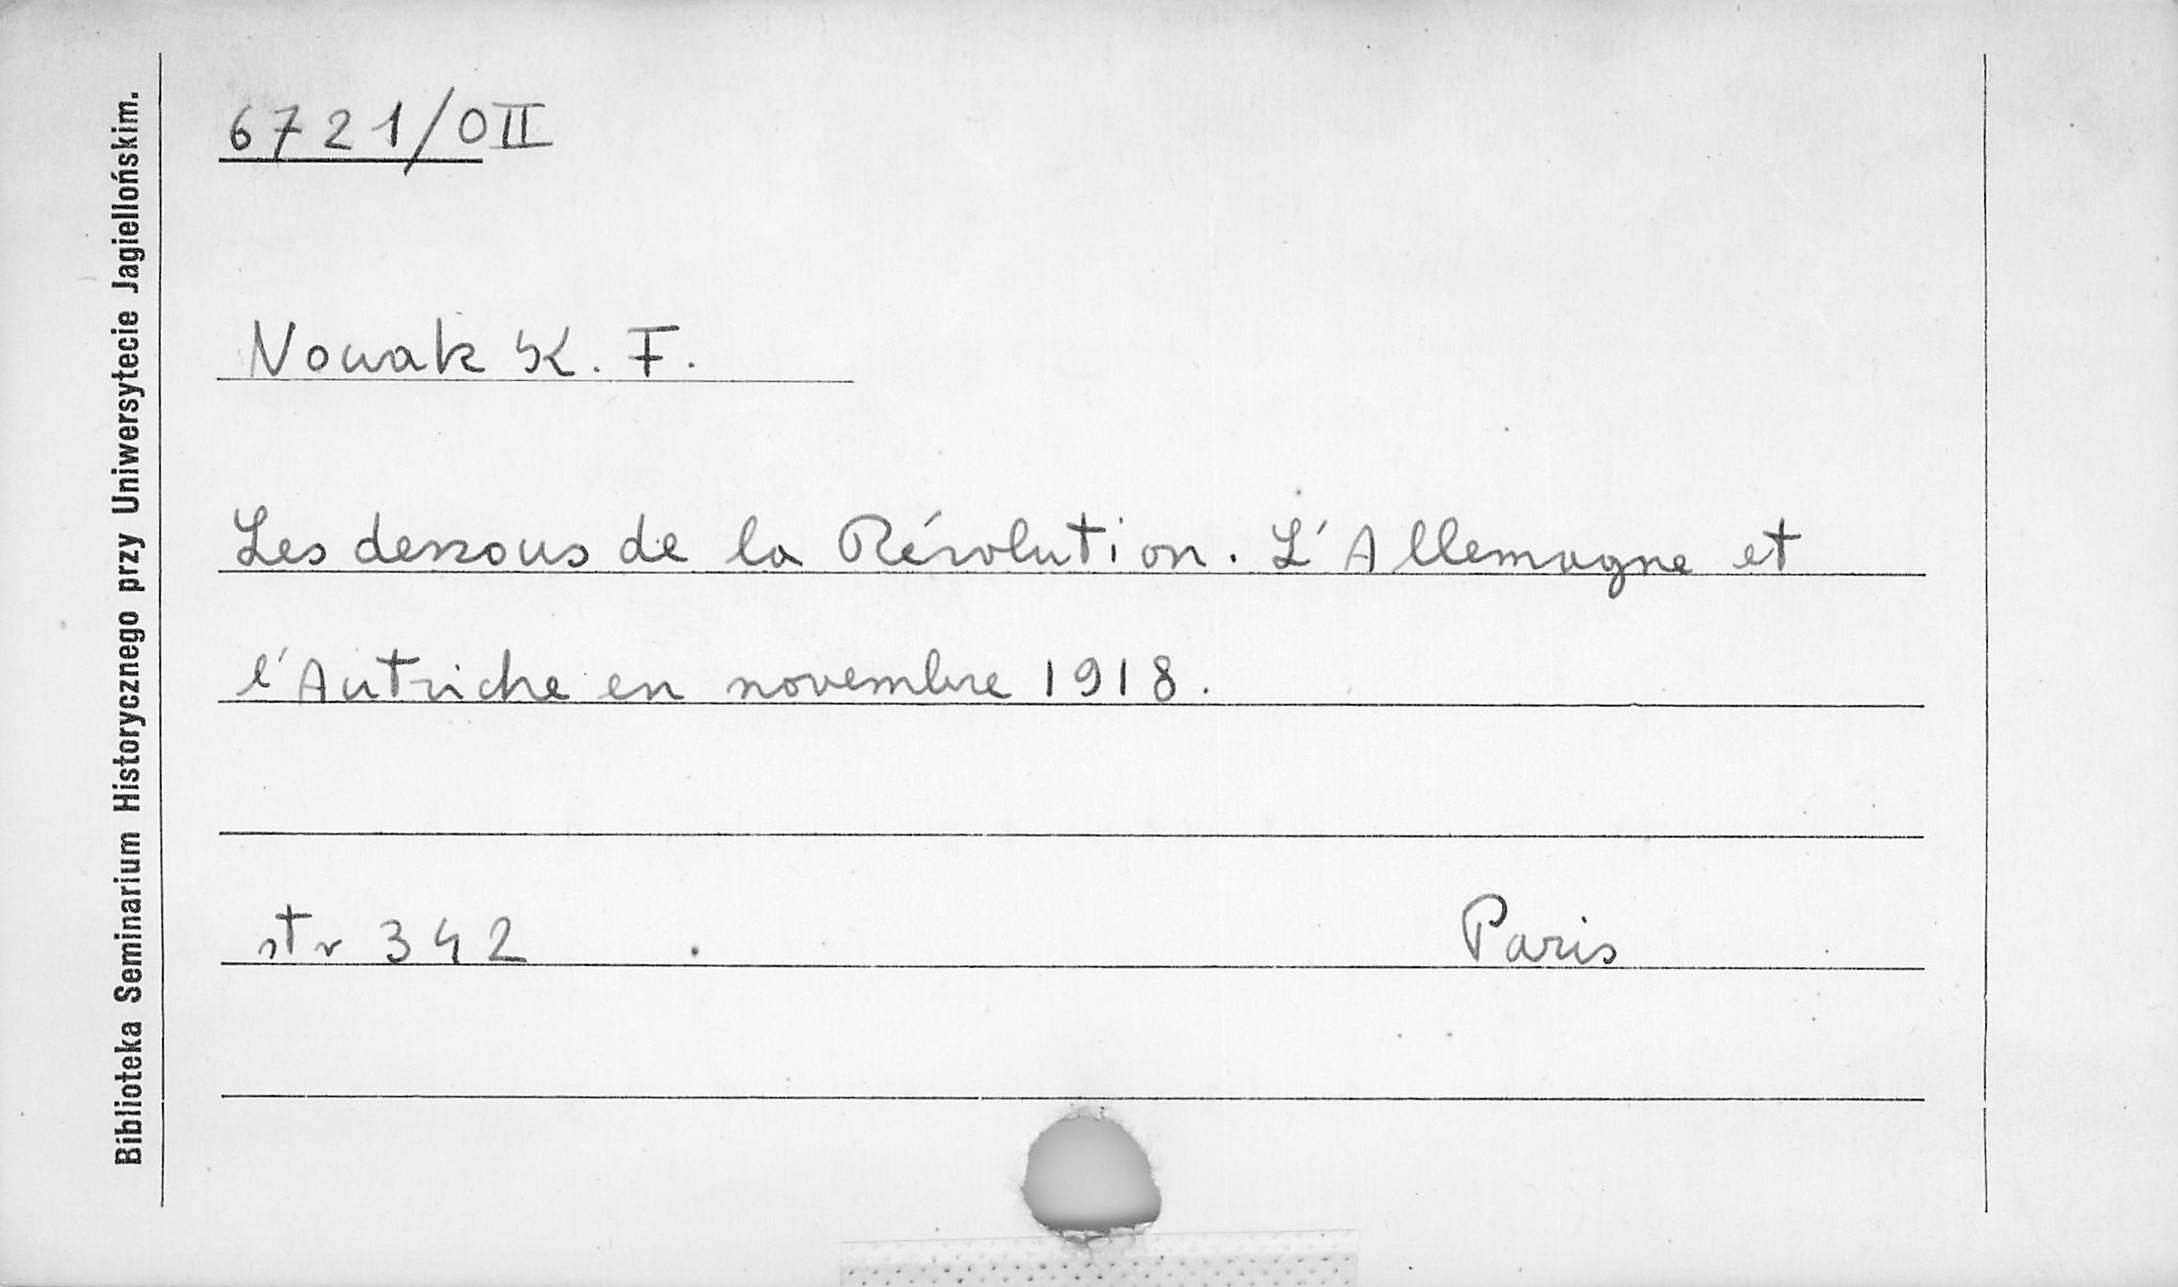 Biblioteka Seminarium Historycznego przy Uniwersytecie Jagiellońskim.
6721/0II
Nowak K. F.
Les dessous de la Révolution. L'Allemagne et
l'Autriche en novembre 1918.
str 342
Paris